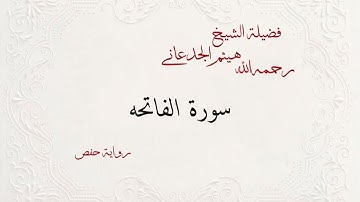 فضيلة الشيخ
هيثم الجدعاني
رحمه الله
سورة الفاتحه
رواية حفص